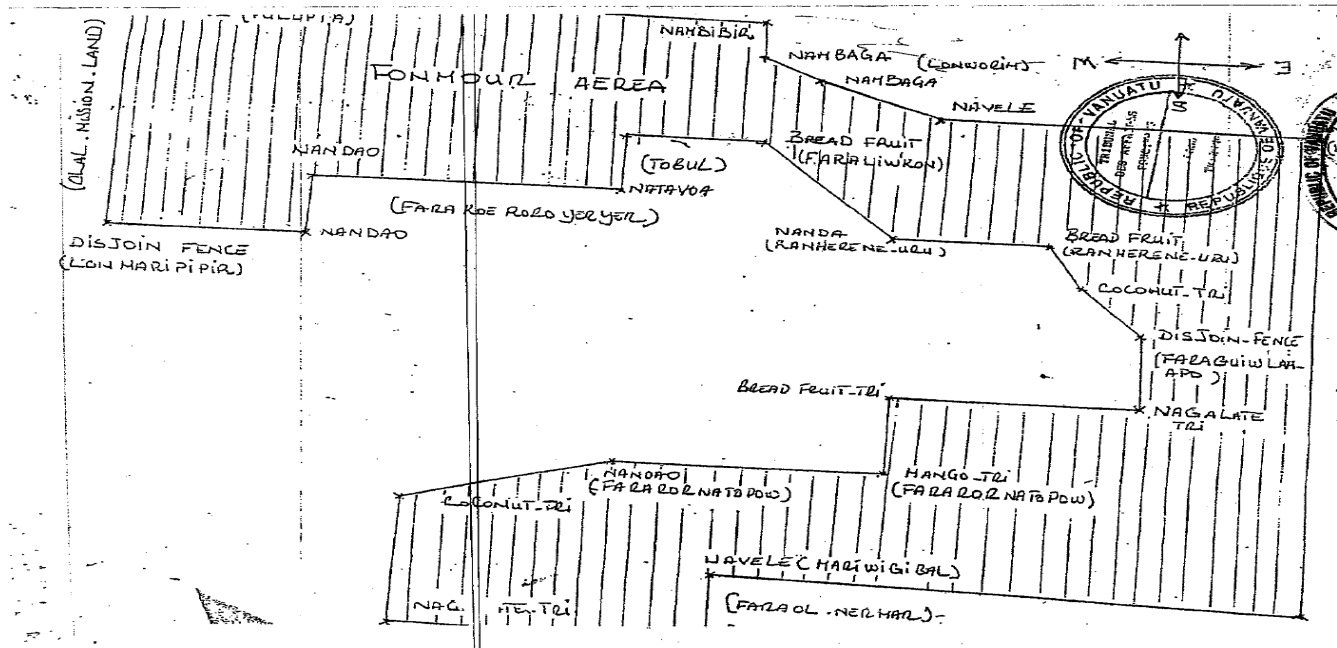 NAMBIBIR
(OLAL.MISSION.LAND)
NAMBAGA (LONWORIM)
NAMBAGA
W
E
S
FONMOUR AEREA
NAVELE
BREAD FRUIT
(FARALIWKON)
NANDAO
(TOBUL)
NATAVOA
(FARA KOE RORO YERYER)
NANDAO
DISJOIN FENCE
(LON MARIPIPIR)
NANDA
(RANHERENE-URU)
BREAD FRUIT
(RANHERENE-URU)
COCONUT-TRI
DISJOIN-FENCE
(FARAGUIWLAH-
APO)
BREAD FRUIT-TRI
NAGALATE
TRI
NANDAO
(FARARORNATOPOW)
MANGO-TRI
(FARARORNATOPOW)
COCONUT-TRI
NAVELE (MARIWIGIBAL)
NAG
TRI
(FARAOL.NERMAR)-
REPUBLIC OF VANUATU
TRIBUNAL
DES AFFAIRES
REPUBLIC OF VANUATU